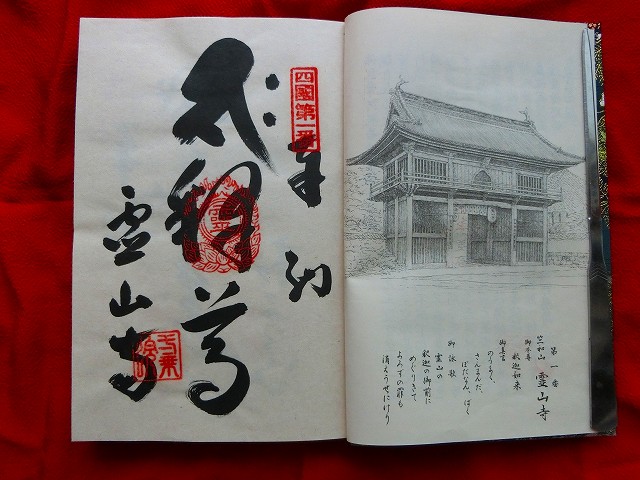 第一番
竺和山 霊山寺
御本尊 釈迦如来
御真言
のうまく、
さんまんだ、
ばだなん、ばく
御詠歌
霊山の
釈迦の御前に
めぐりきて
よろずの罪も
消えうせにけり
四國第一番
奉納
釋尊
霊山寺